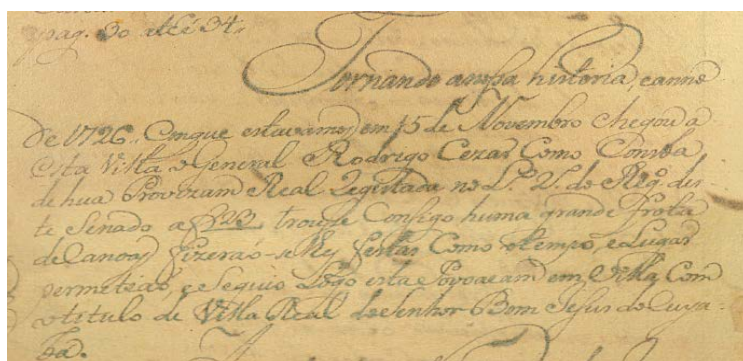 pag. 30 até 34.
Tornando anossa historia, eanno
de 1726.. Emque estavamos, em 15 de Novembro chegou a
esta Villa, o General Rodrigo Cezar Como Consta
de hua Provizam Real Registada no L.º 2.º do Reg.º des
te Senado a f 22 trouxe Consigo huma grande frota
de Canoas fizeraó-se lhy festas Como otempo, e Lugar
permeteaó, e Seguio Logo esta Povoacam em Villa Com
otitulo de Villa Real doSenhor Bom Jesus do Cuya
bá.